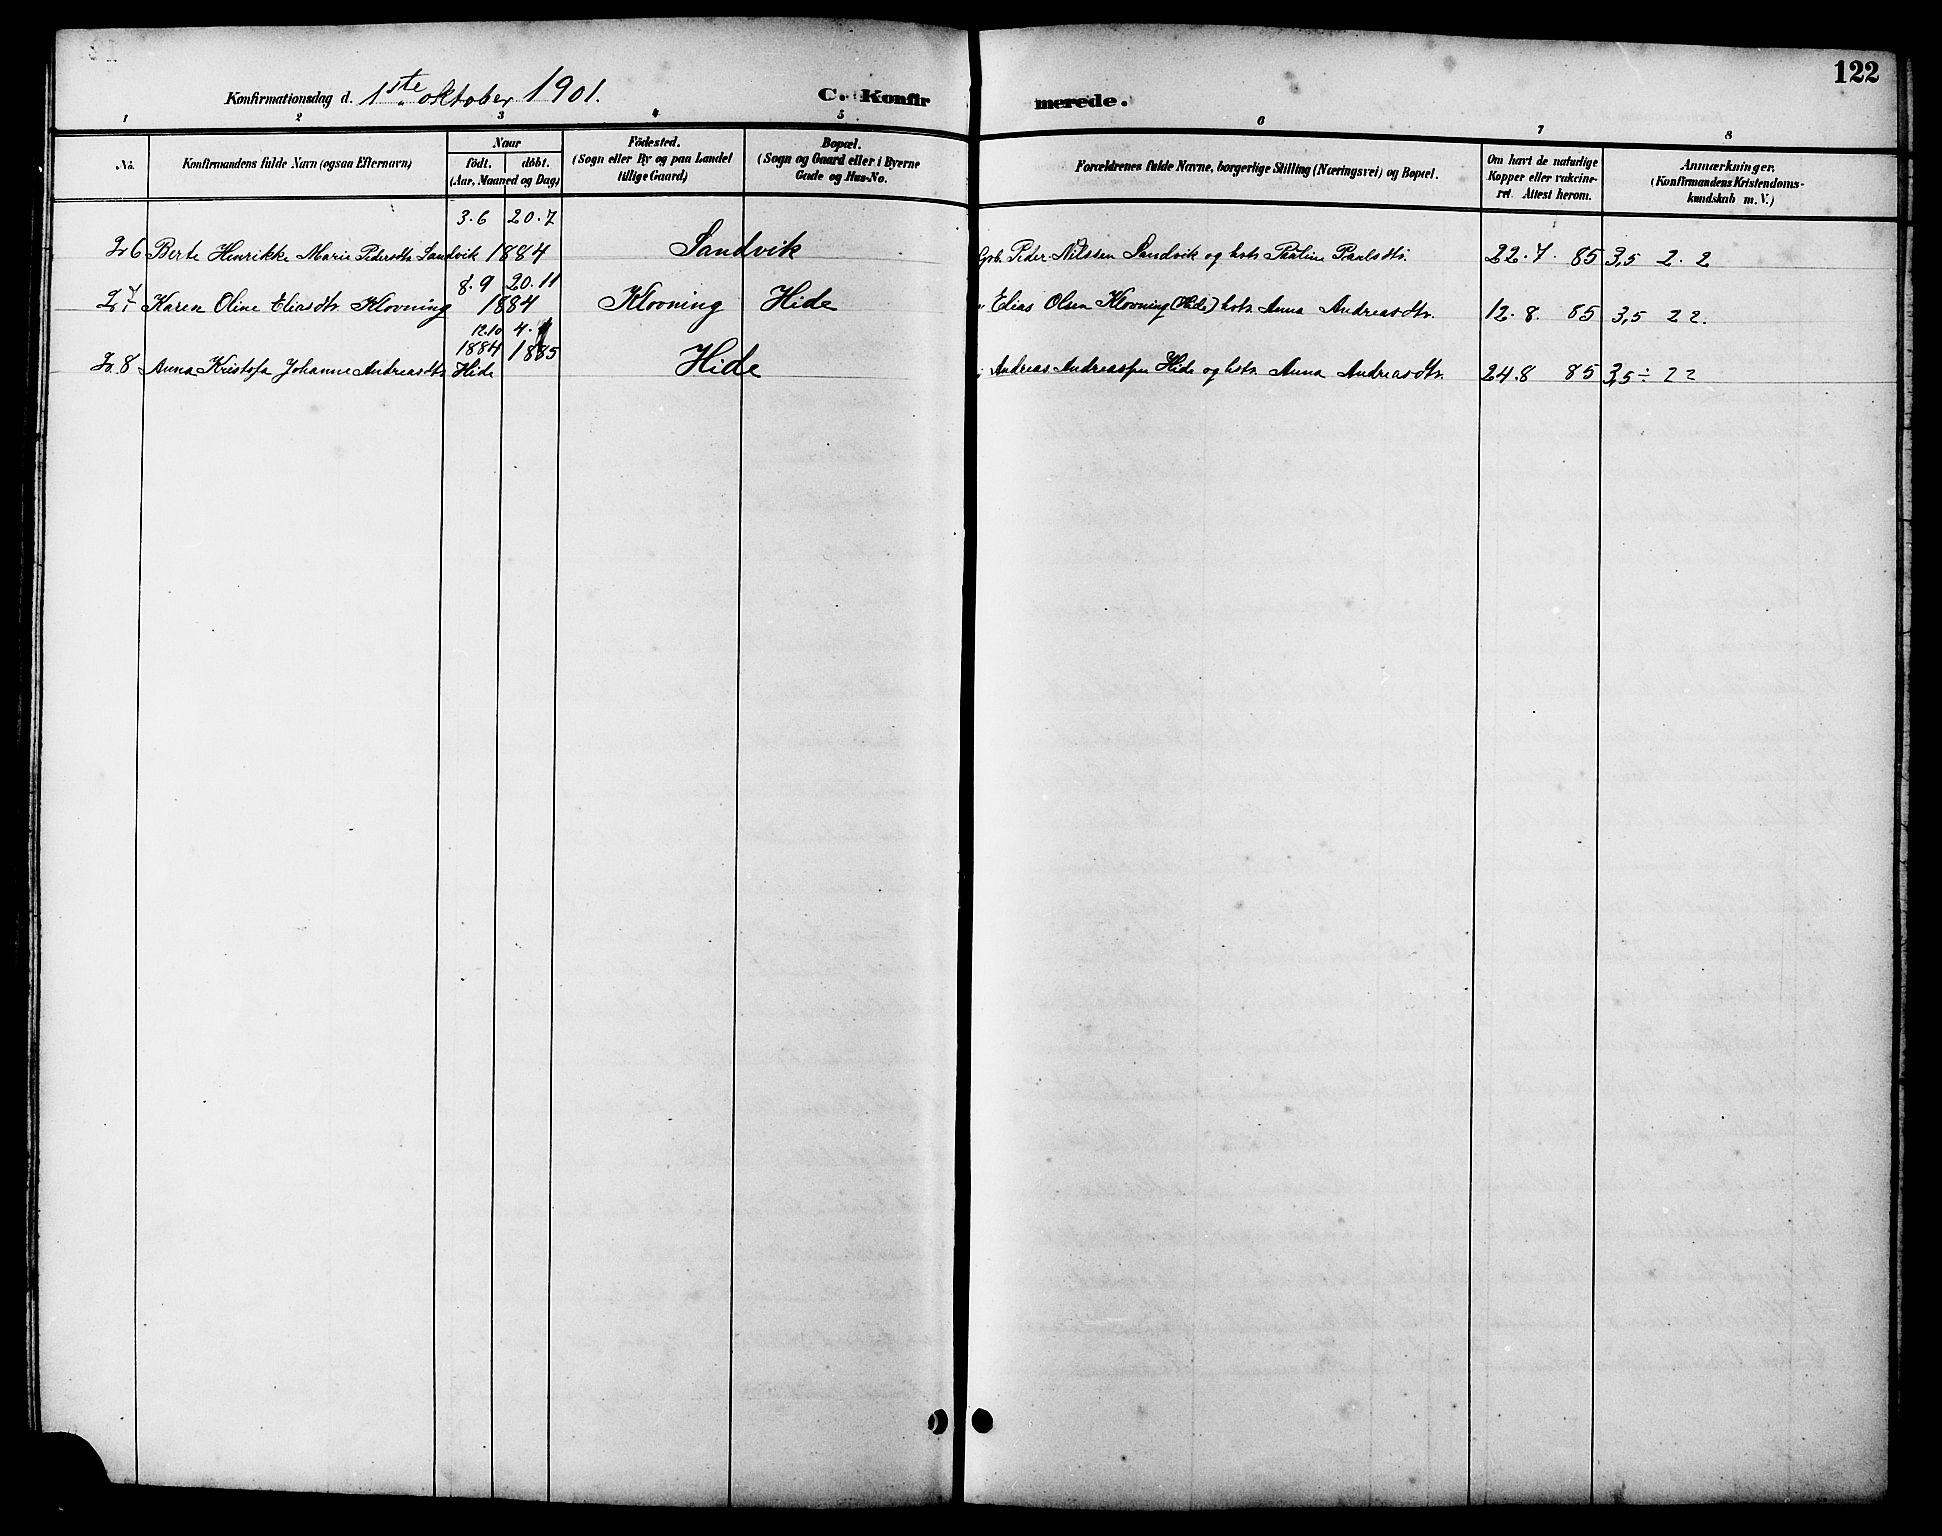 122
Konfirmationsdag d. 1ste oktober 1901. C. Konfirmerede.
1 2 3 4 5 6 7 8
No. Konfirmandens fulde Navn (ogsaa Efternavn) Naar födt. döbt. (Aar, Maaned og Dag) Födested. (Sogn eller By og paa Landet tillige Gaard) Bopæl. (Sogn og Gaard eller i Byerne Gade og Hus-No. Forældrenes fulde Navne, borgerlige Stilling (Næringsvei) og Bopæl. Om havt de naturlige Kopper eller vakcineret. Attest herom. Anmærkninger. (Konfirmandens Kristendomskundskab m. V.)
3.6 20.7
26 Berte Henrikke Marie Pedersdtr Sandvik 1884 Sandvik Grb. Peder Nilssen Sandvik og hstr. Pauline Paulsdtr. 22.7. 85 3,5 2. 2
8.9 20.11
27 Karen Oline Eliasdtr. Klovning 1884 Klovning Hide Elias Olsen Klovning (Hide) hstr. Anna Andreasdtr. 12.8. 85 3,5 2 2.
12.10 4.
1884 1885
28 Anna Kristofa Johanne Andreasdtr Hide Hide Andreas Andreassen Hide og hstr. Anna Andreasdtr. 24.8 85 3,5 ÷ 2 2